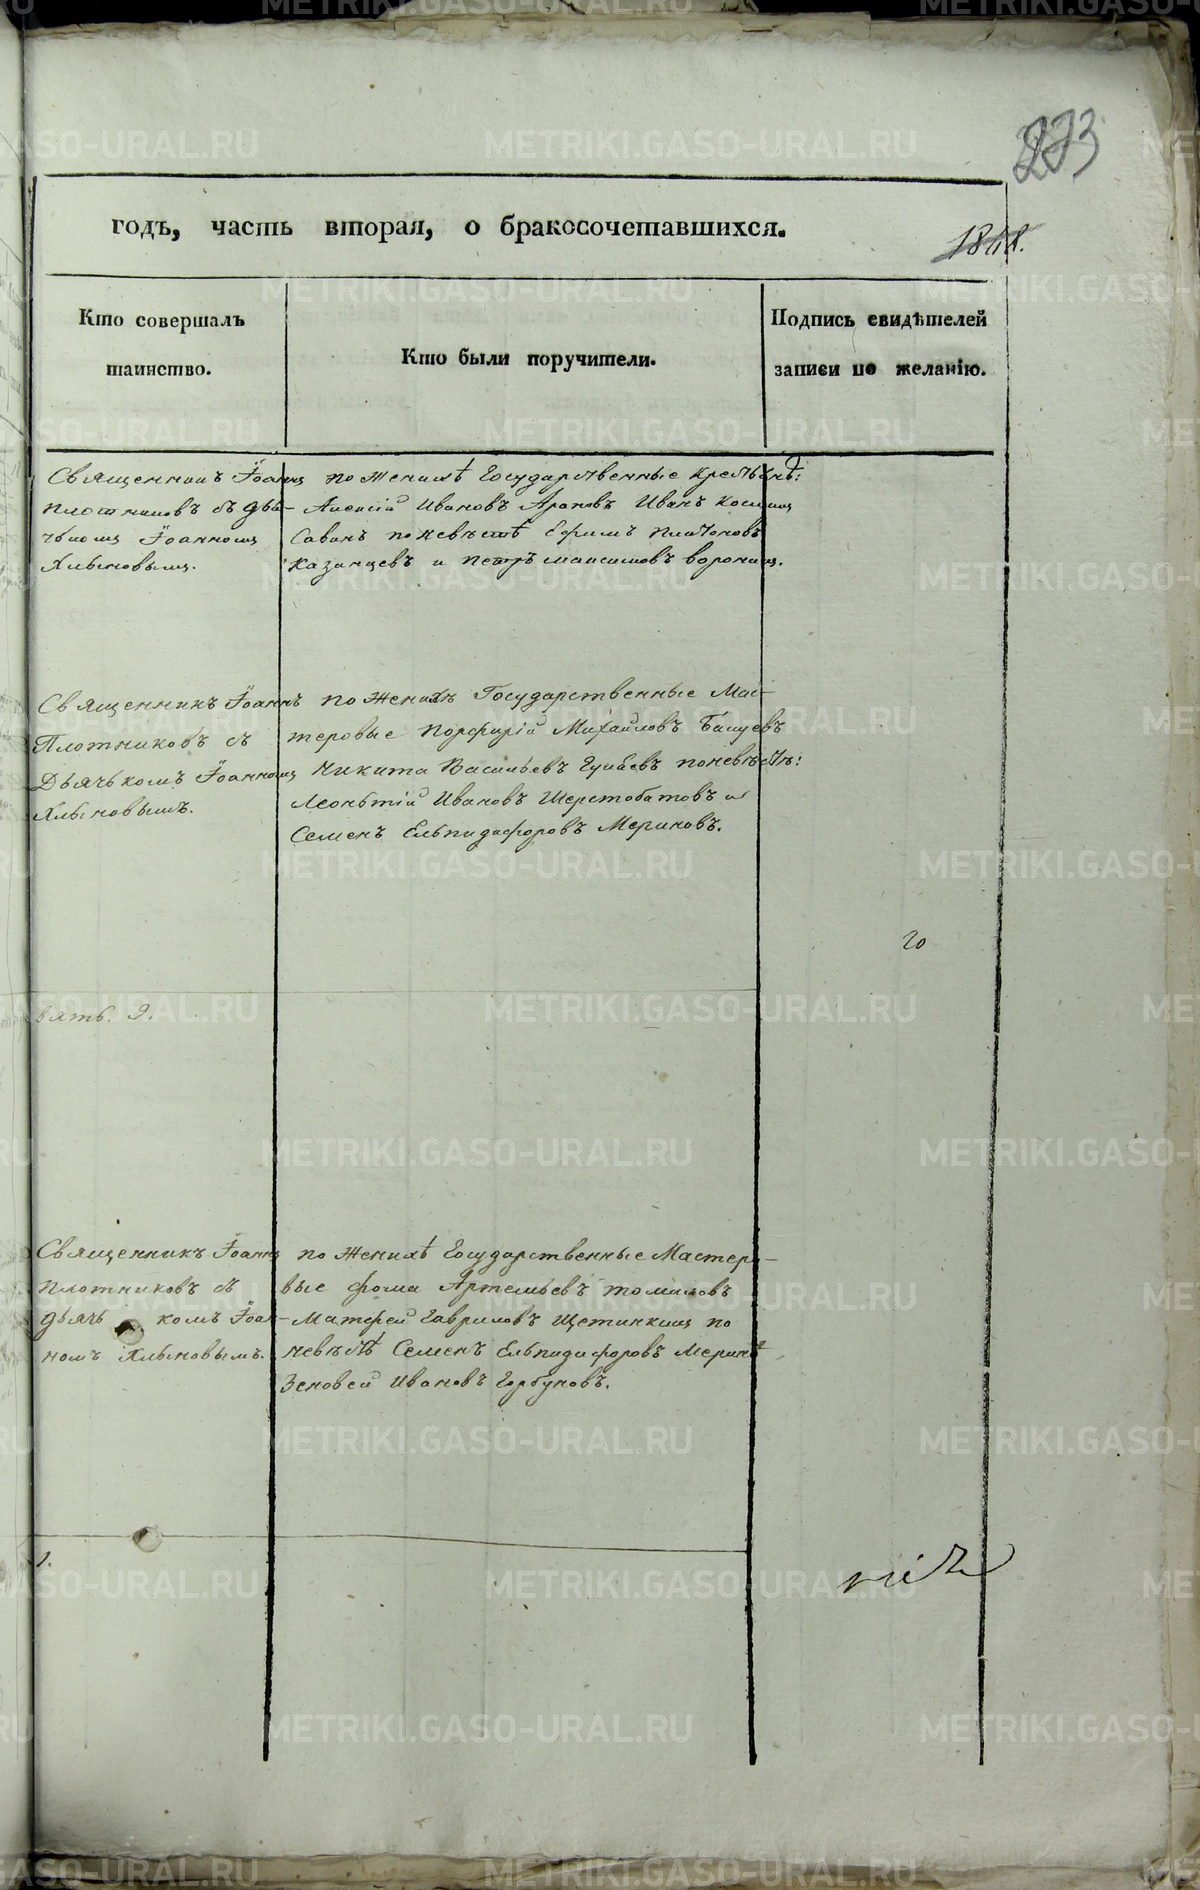 273
годъ, часть вторая, о бракосочетавшихся.
1848.
Кто совершалъ
таинство.
Кто были поручители.
Подпись свидѣтелей
записи по желанію.
Священникъ Іоаннъ
Плотниковъ съ дья-
чкомъ Іоанномъ
Хлыновымъ.
по женихѣ Государственные крестьяне:
Алексій Ивановъ Араповъ Иванъ Козминъ
Саванъ по невѣстѣ Ефимъ Платоновъ
Казанцевъ и Петръ Максимовъ Воронинъ.
Священникъ Іоаннъ
Плотниковъ съ
Дьячькомъ Іоанномъ
Хлыновымъ.
по женихѣ Государственные Мас-
теровые Порфирій Михайловъ
Никита Васильевъ по невѣстѣ:
Леоньтій Ивановъ Шерстобатовъ и
Семенъ Ельпидифоровъ Мериновъ.
20
вять. 9.
Священникъ Іоаннъ
Плотниковъ съ
дьячь комъ Іоан-
номъ Хлыновымъ.
по женихѣ Государственные Мастеро-
вые Фома Артемьевъ Томиловъ
Матфей Гавриловъ Щетинкинъ по
невѣстѣ Семенъ Ельпидифоровъ Мерин
Зеновей Ивановъ Горбуновъ.
1.
METRIKI.GASO-URAL.RU